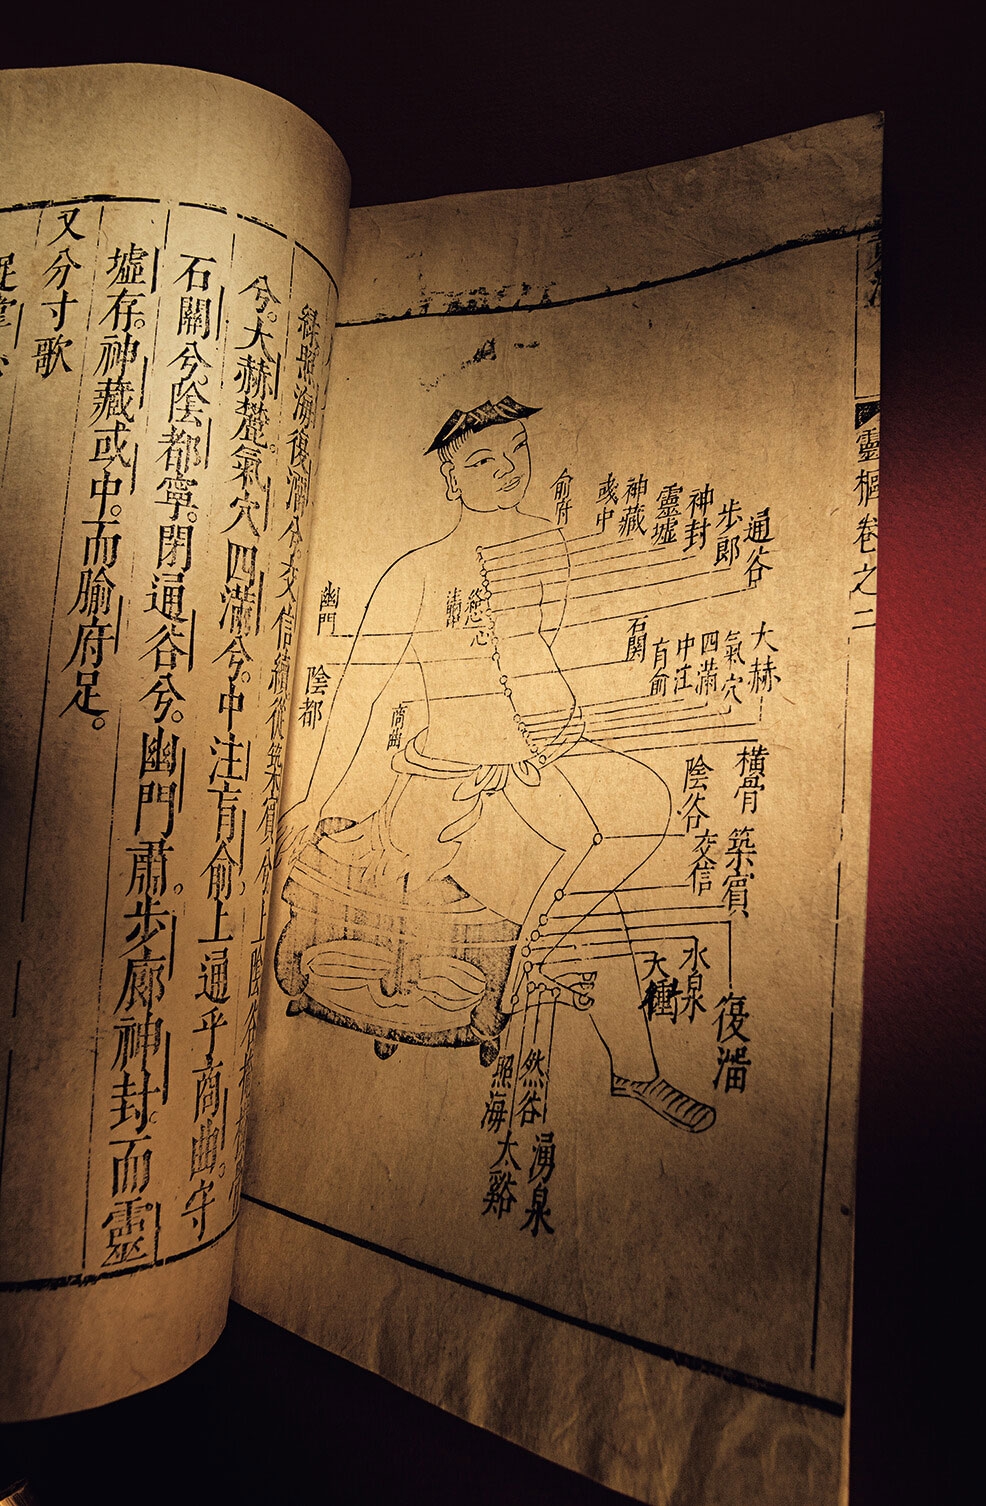 靈樞卷之二
通谷
步郎
神封
靈墟
神藏
彧中
俞府
大赫
氣穴
四滿
中注
肓俞
石關
幽門
陰都
商曲
橫骨
陰谷
築賓
交信
復溜
水泉
大鍾
湧泉
然谷
太谿
照海
緣照海復溜兮。交信續從築賓兮上陰谷
兮。大赫麓。氣穴四滿兮。中注肓俞上通乎商曲。守
石關兮。陰都寧。閉通谷兮。幽門肅。步廊神封。而靈
墟存。神藏或中。而腧府足。
又分寸歌